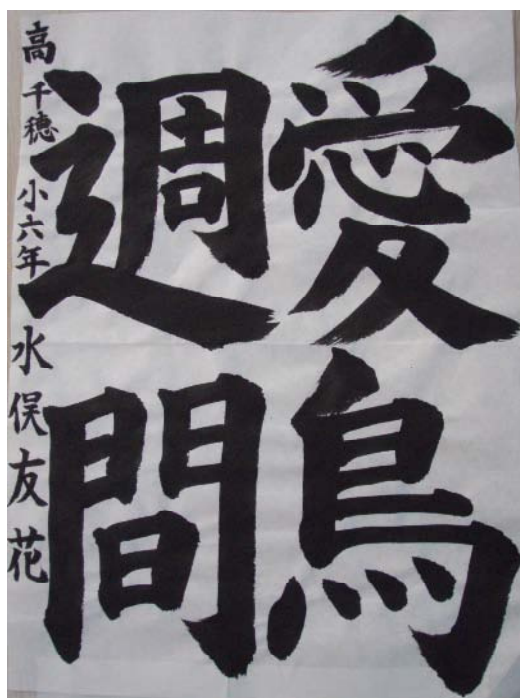 愛鳥
週間
高千穂小六年水俣友花